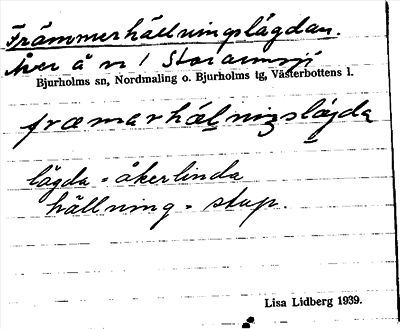 Främmerhällningslägdan.
Åker å nr 1 Storarmsjö
Bjurholms sn, Nordmaling o. Bjurholms tg, Västerbottens l.
fræmarhälningslägda
lägda = åkerlinda
hällning = stup.
Lisa Lidberg 1939.